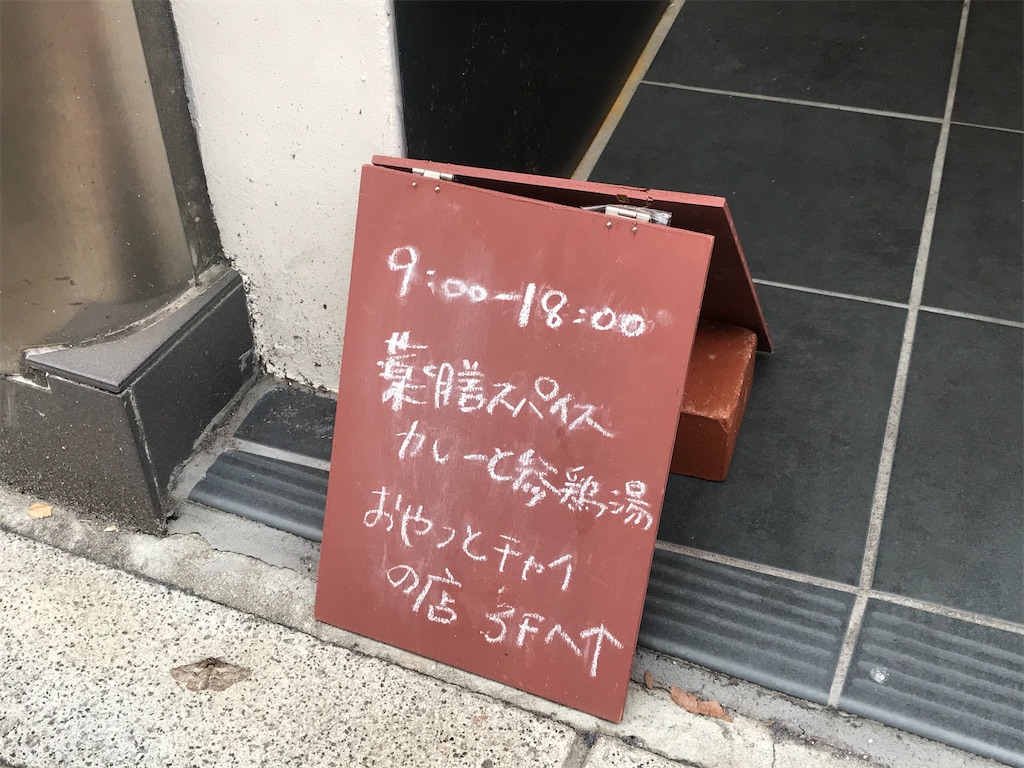 9:00-18:00
薬膳スパイス
カレーと参鶏湯
おやつとチャイ
の店 3Fへ↑